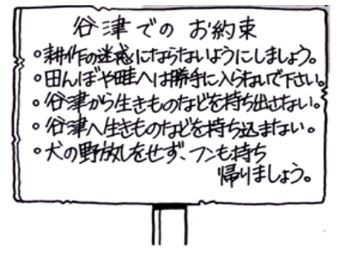 谷津でのお約束
○耕作の迷惑にならないようにしましょう。
○田んぼや畦へは勝手に入らないで下さい。
○谷津から生きものなどを持ち出さない。
○谷津へ生きものなどを持ち込まない。
○犬の野放しをせず、フンも持ち
帰りましょう。